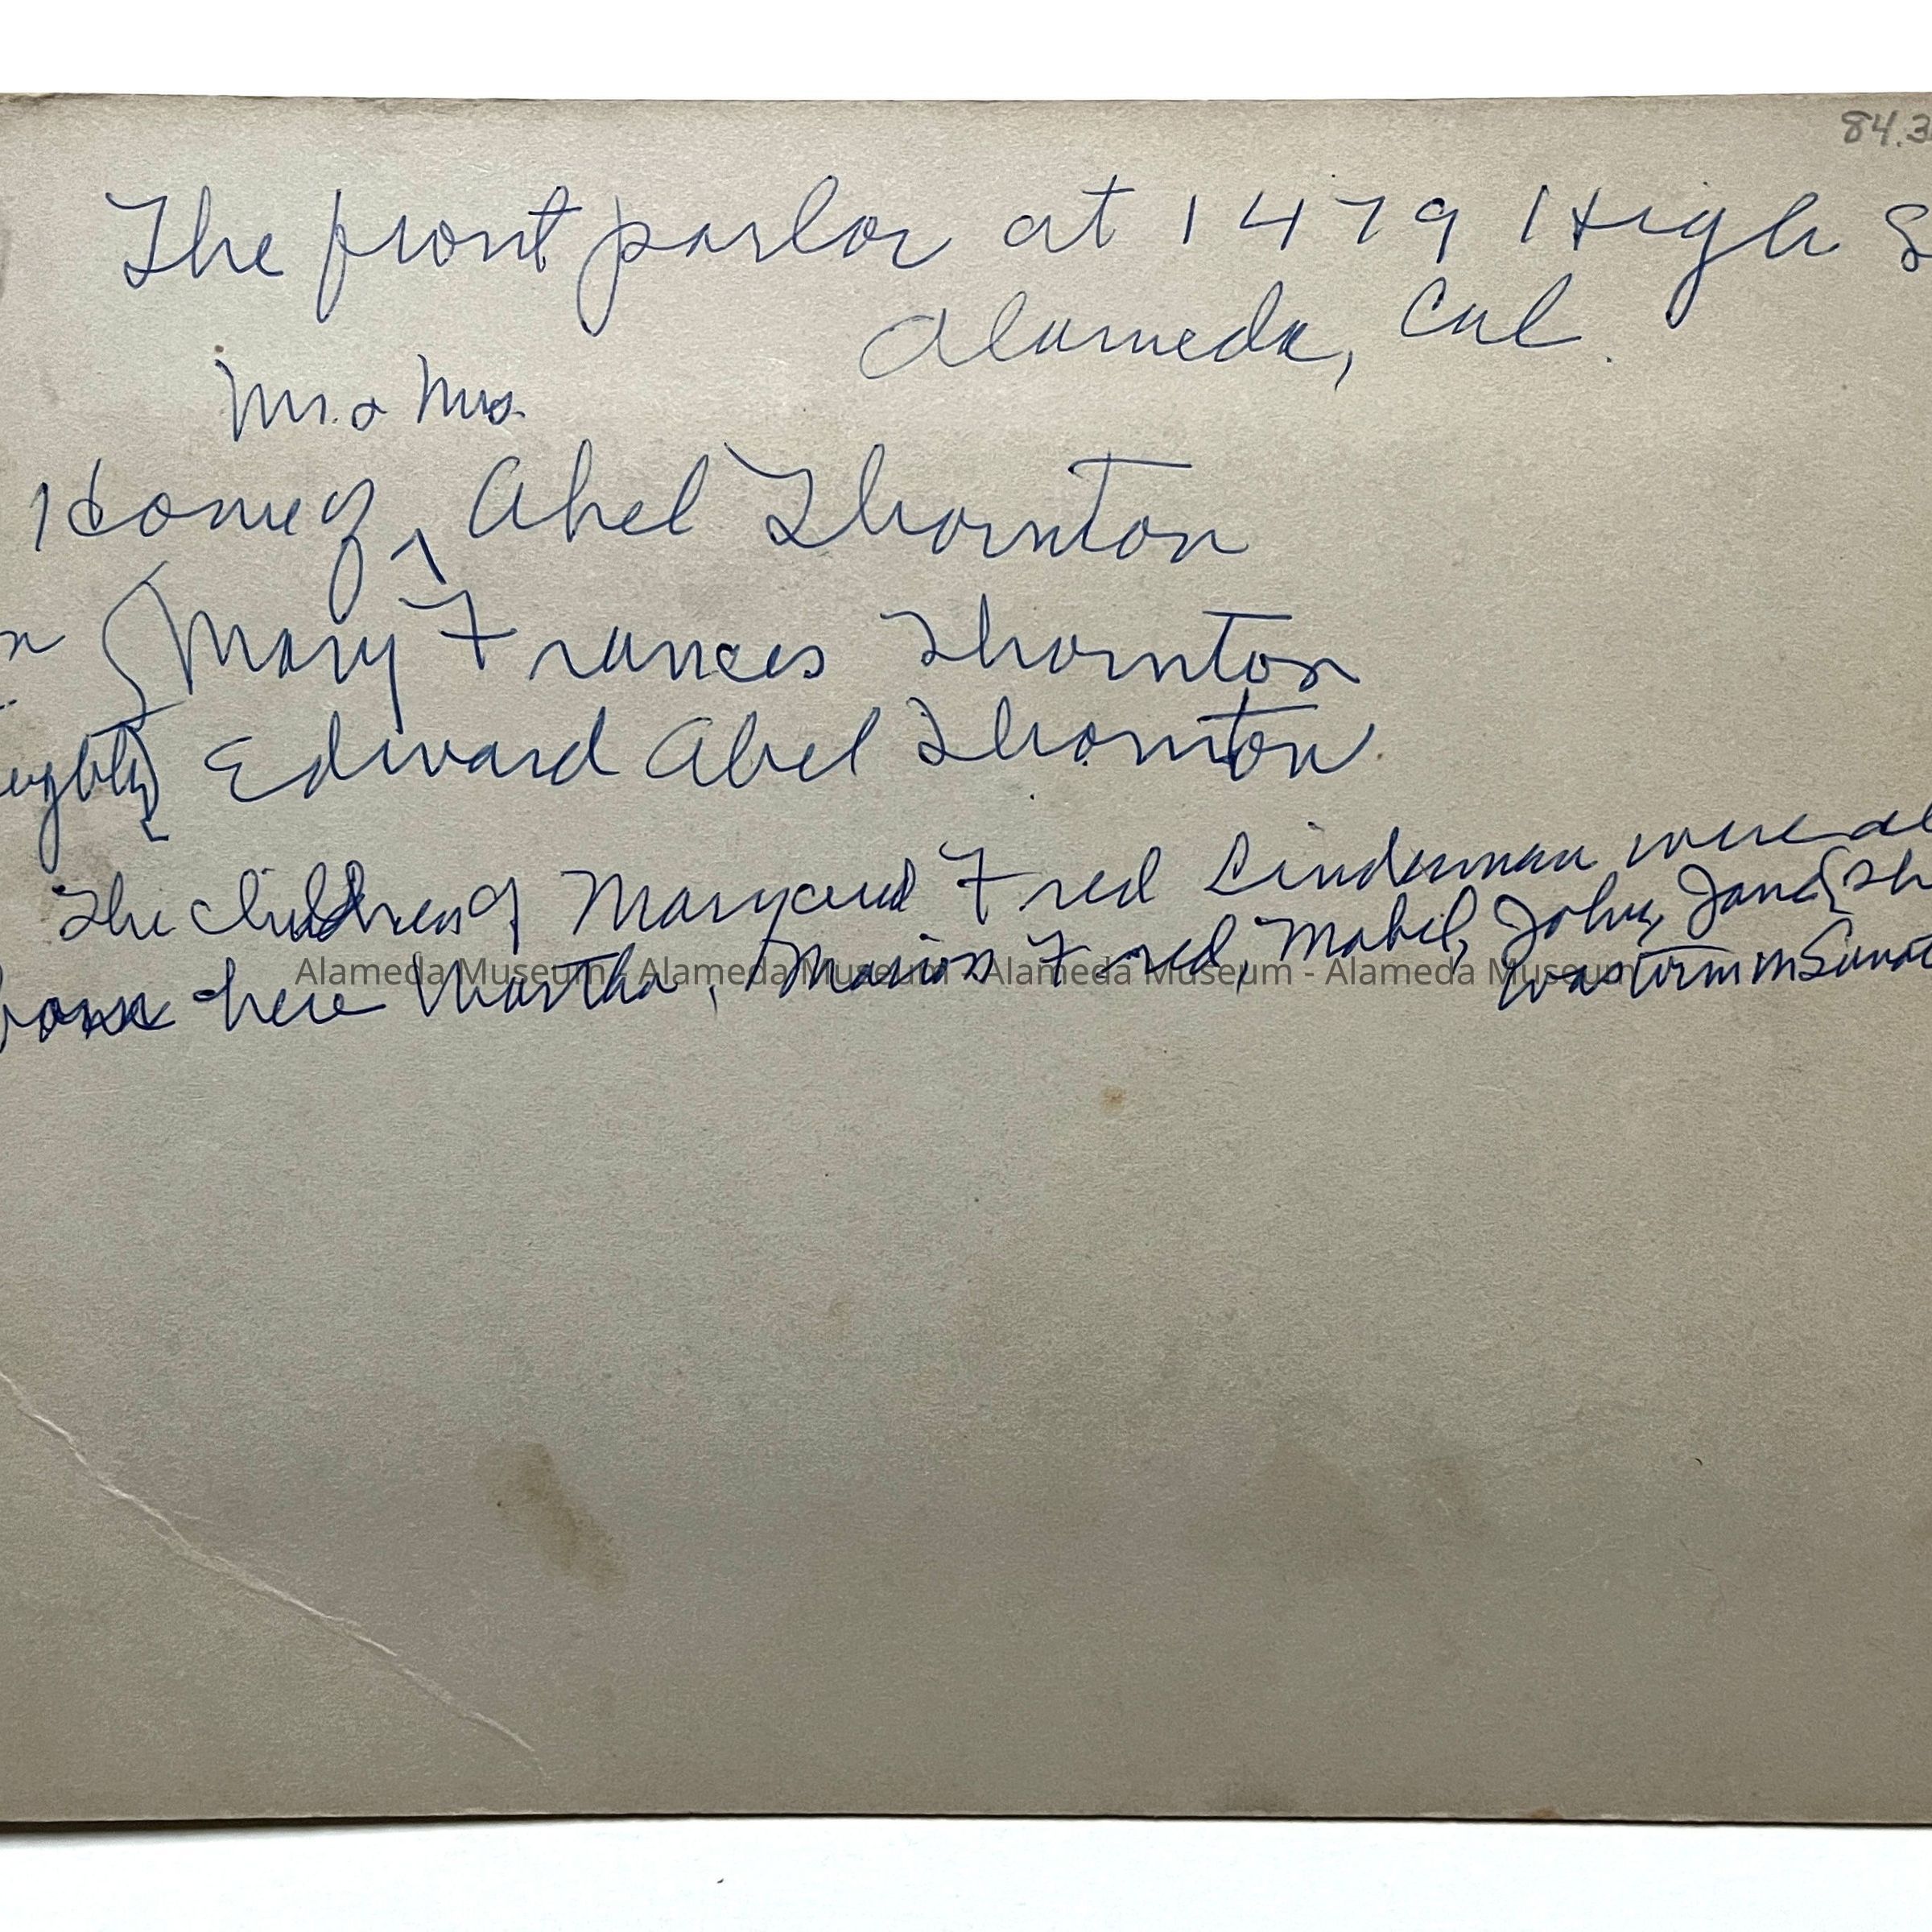 84.3
The front parlor at 1479 High S
Alameda, Cal.
Mr. & Mrs.
Home of ^ Abel Thornton
Mary Frances Thornton
Edward Abel Thornton.
The children of Mary and Fred Linderman were al
born here Martha, Marion Fred, Mabel, John, Jane (Sh
was born in Sanat
Alameda Museum - Alameda Museum - Alameda Museum - Alameda Museum